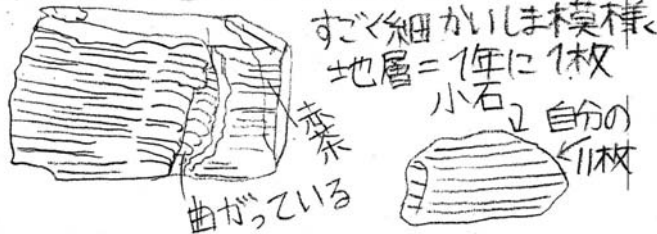 すごく細かいしま模様
地層=1年に1枚
小石
自分の
11枚
赤茶
曲がっている